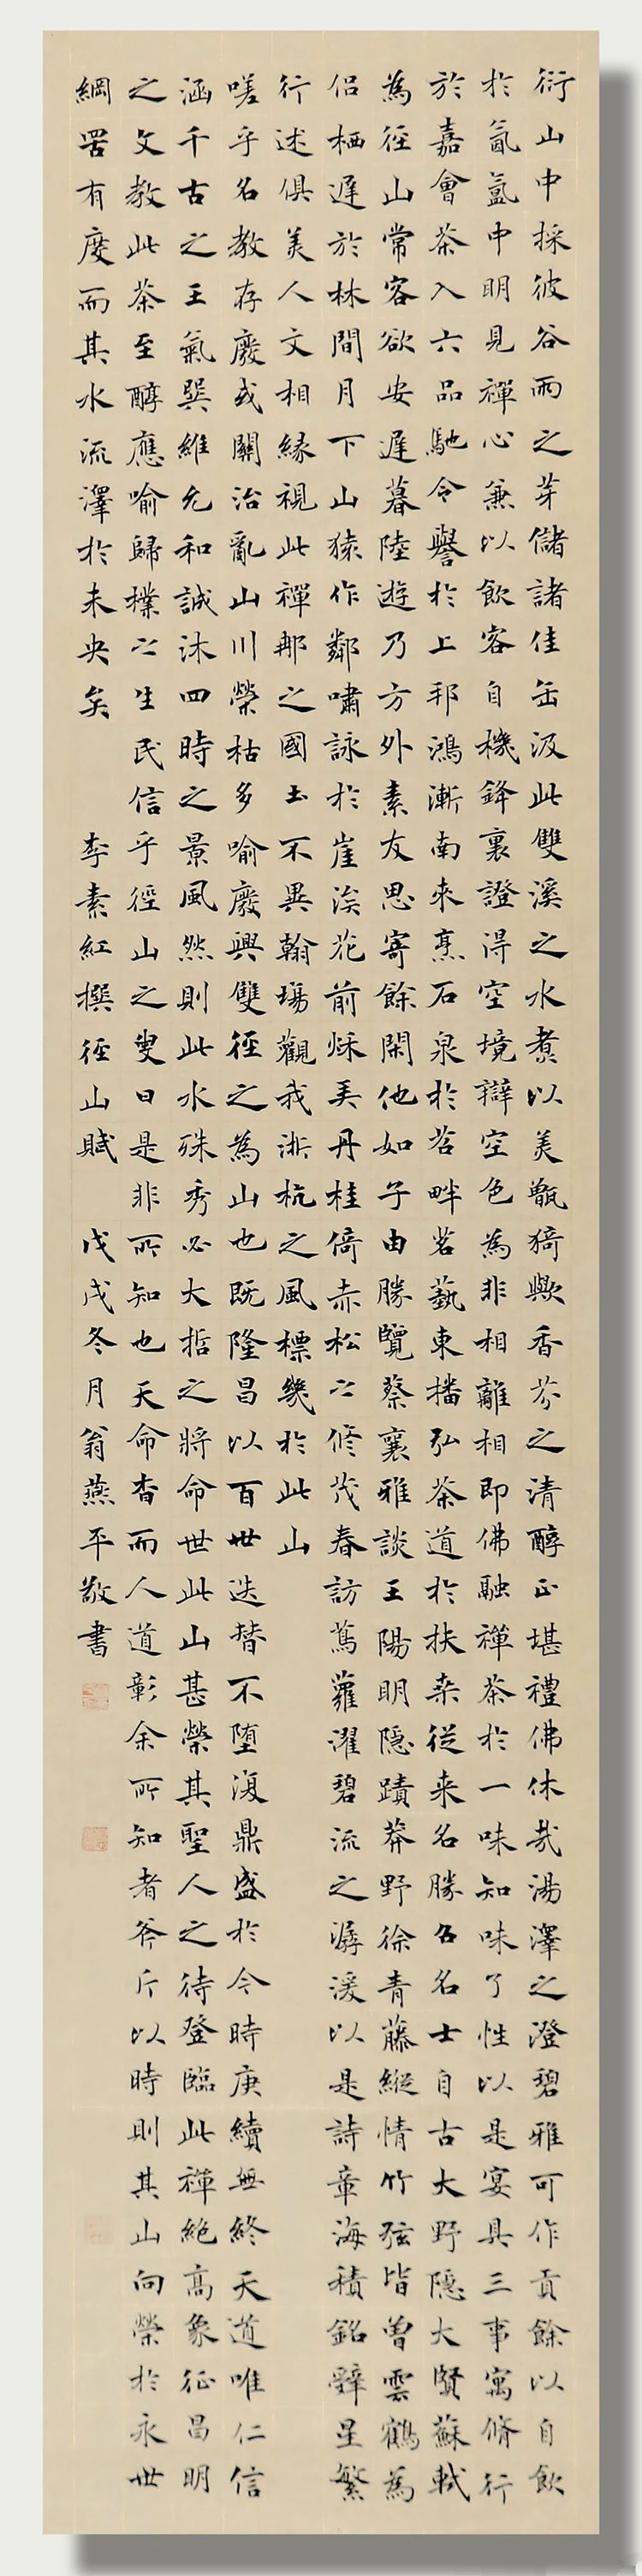 衍山中採彼谷雨之芽儲諸佳缶汲此雙溪之水煮以美甑猗歟香芬之清醇正堪禮佛休哉湯澤之澄碧雅可作貢餘以自飲
於氤氳中明見禪心兼以飲客自機鋒裏證得空境辯空色為非相離相即佛融禪茶於一味知味了性以是宴具三事寓脩行
於嘉會茶入六品馳令譽於上邦鴻漸南來烹石泉於苕畔茗藝東播弘茶道於扶桑從来名勝召名士自古大野隱大賢蘇軾
為徑山常客欲安遲暮陸遊乃方外素友思寄餘閑他如子由勝覽蔡襄雅談王陽明隱蹟莽野徐青藤縱情竹弦皆曽雲鶴為
侶栖遲於林間月下山猿作鄰嘯詠於崖涘花前秌美丹桂倚赤松之脩茂春訪蔦蘿濯碧流之潺湲以是詩章海積銘辭星繁
行述俱美人文相縁視此禪那之國土不異翰場觀我浙杭之風標幾於此山
嗟乎名教存廢或關治亂山川榮枯多喻廢興雙徑之為山也既隆昌以百世迭替不墮復鼎盛於今時庚續無終天道唯仁信
涵千古之王氣巽維允和誠沐四時之景風然則此水殊秀必大哲之將命世此山甚榮其聖人之待登臨此禪絶高象征昌明
之文教此茶至醇應喻歸樸之生民信乎徑山之叟曰是非所知也天命杳而人道彰余所知者斧斤以時則其山向榮於永世
綱罟有度而其水流澤於未央矣 李素紅撰徑山賦 戊戌冬月翁燕平敬書